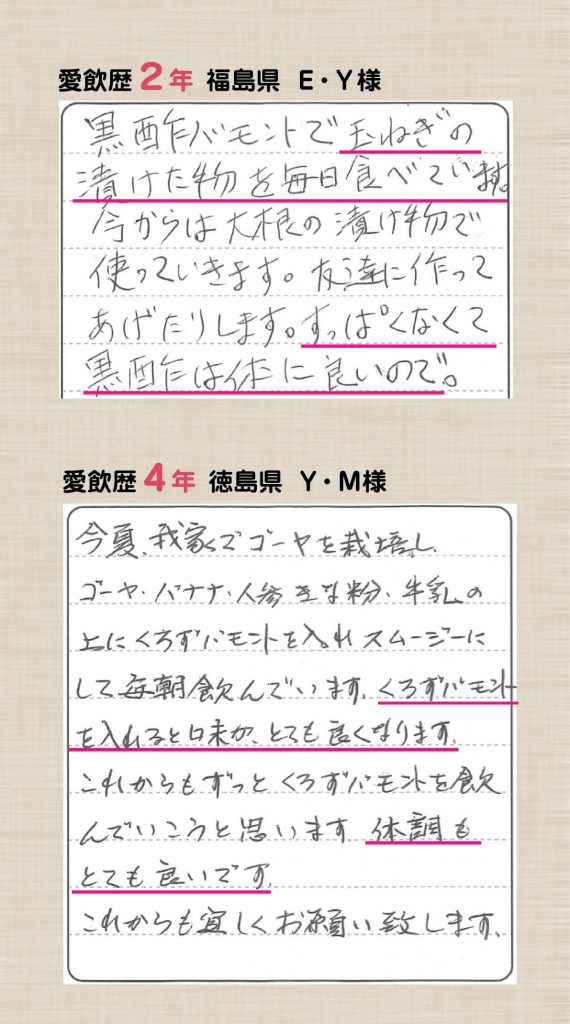 愛飲歴2年 福島県 E・Y様
黒酢バモントで玉ねぎの
漬けた物を毎日食べています。
今からは大根の漬け物で
使っていきます。友達に作って
あげたりします。すっぱくなくて
黒酢は体に良いので。
愛飲歴4年 徳島県 Y・M様
今夏、我家でゴーヤを栽培し、
ゴーヤ・バナナ・人参・きな粉・牛乳の
上にくろずバモントを入れスムージーに
して毎朝飲んでいます。くろずバモント
を入れると味が、とても良くなります。
これからもずっとくろずバモントを飲
んでいこうと思います 体調も
とても良いです。
これからも宜しくお願い致します。